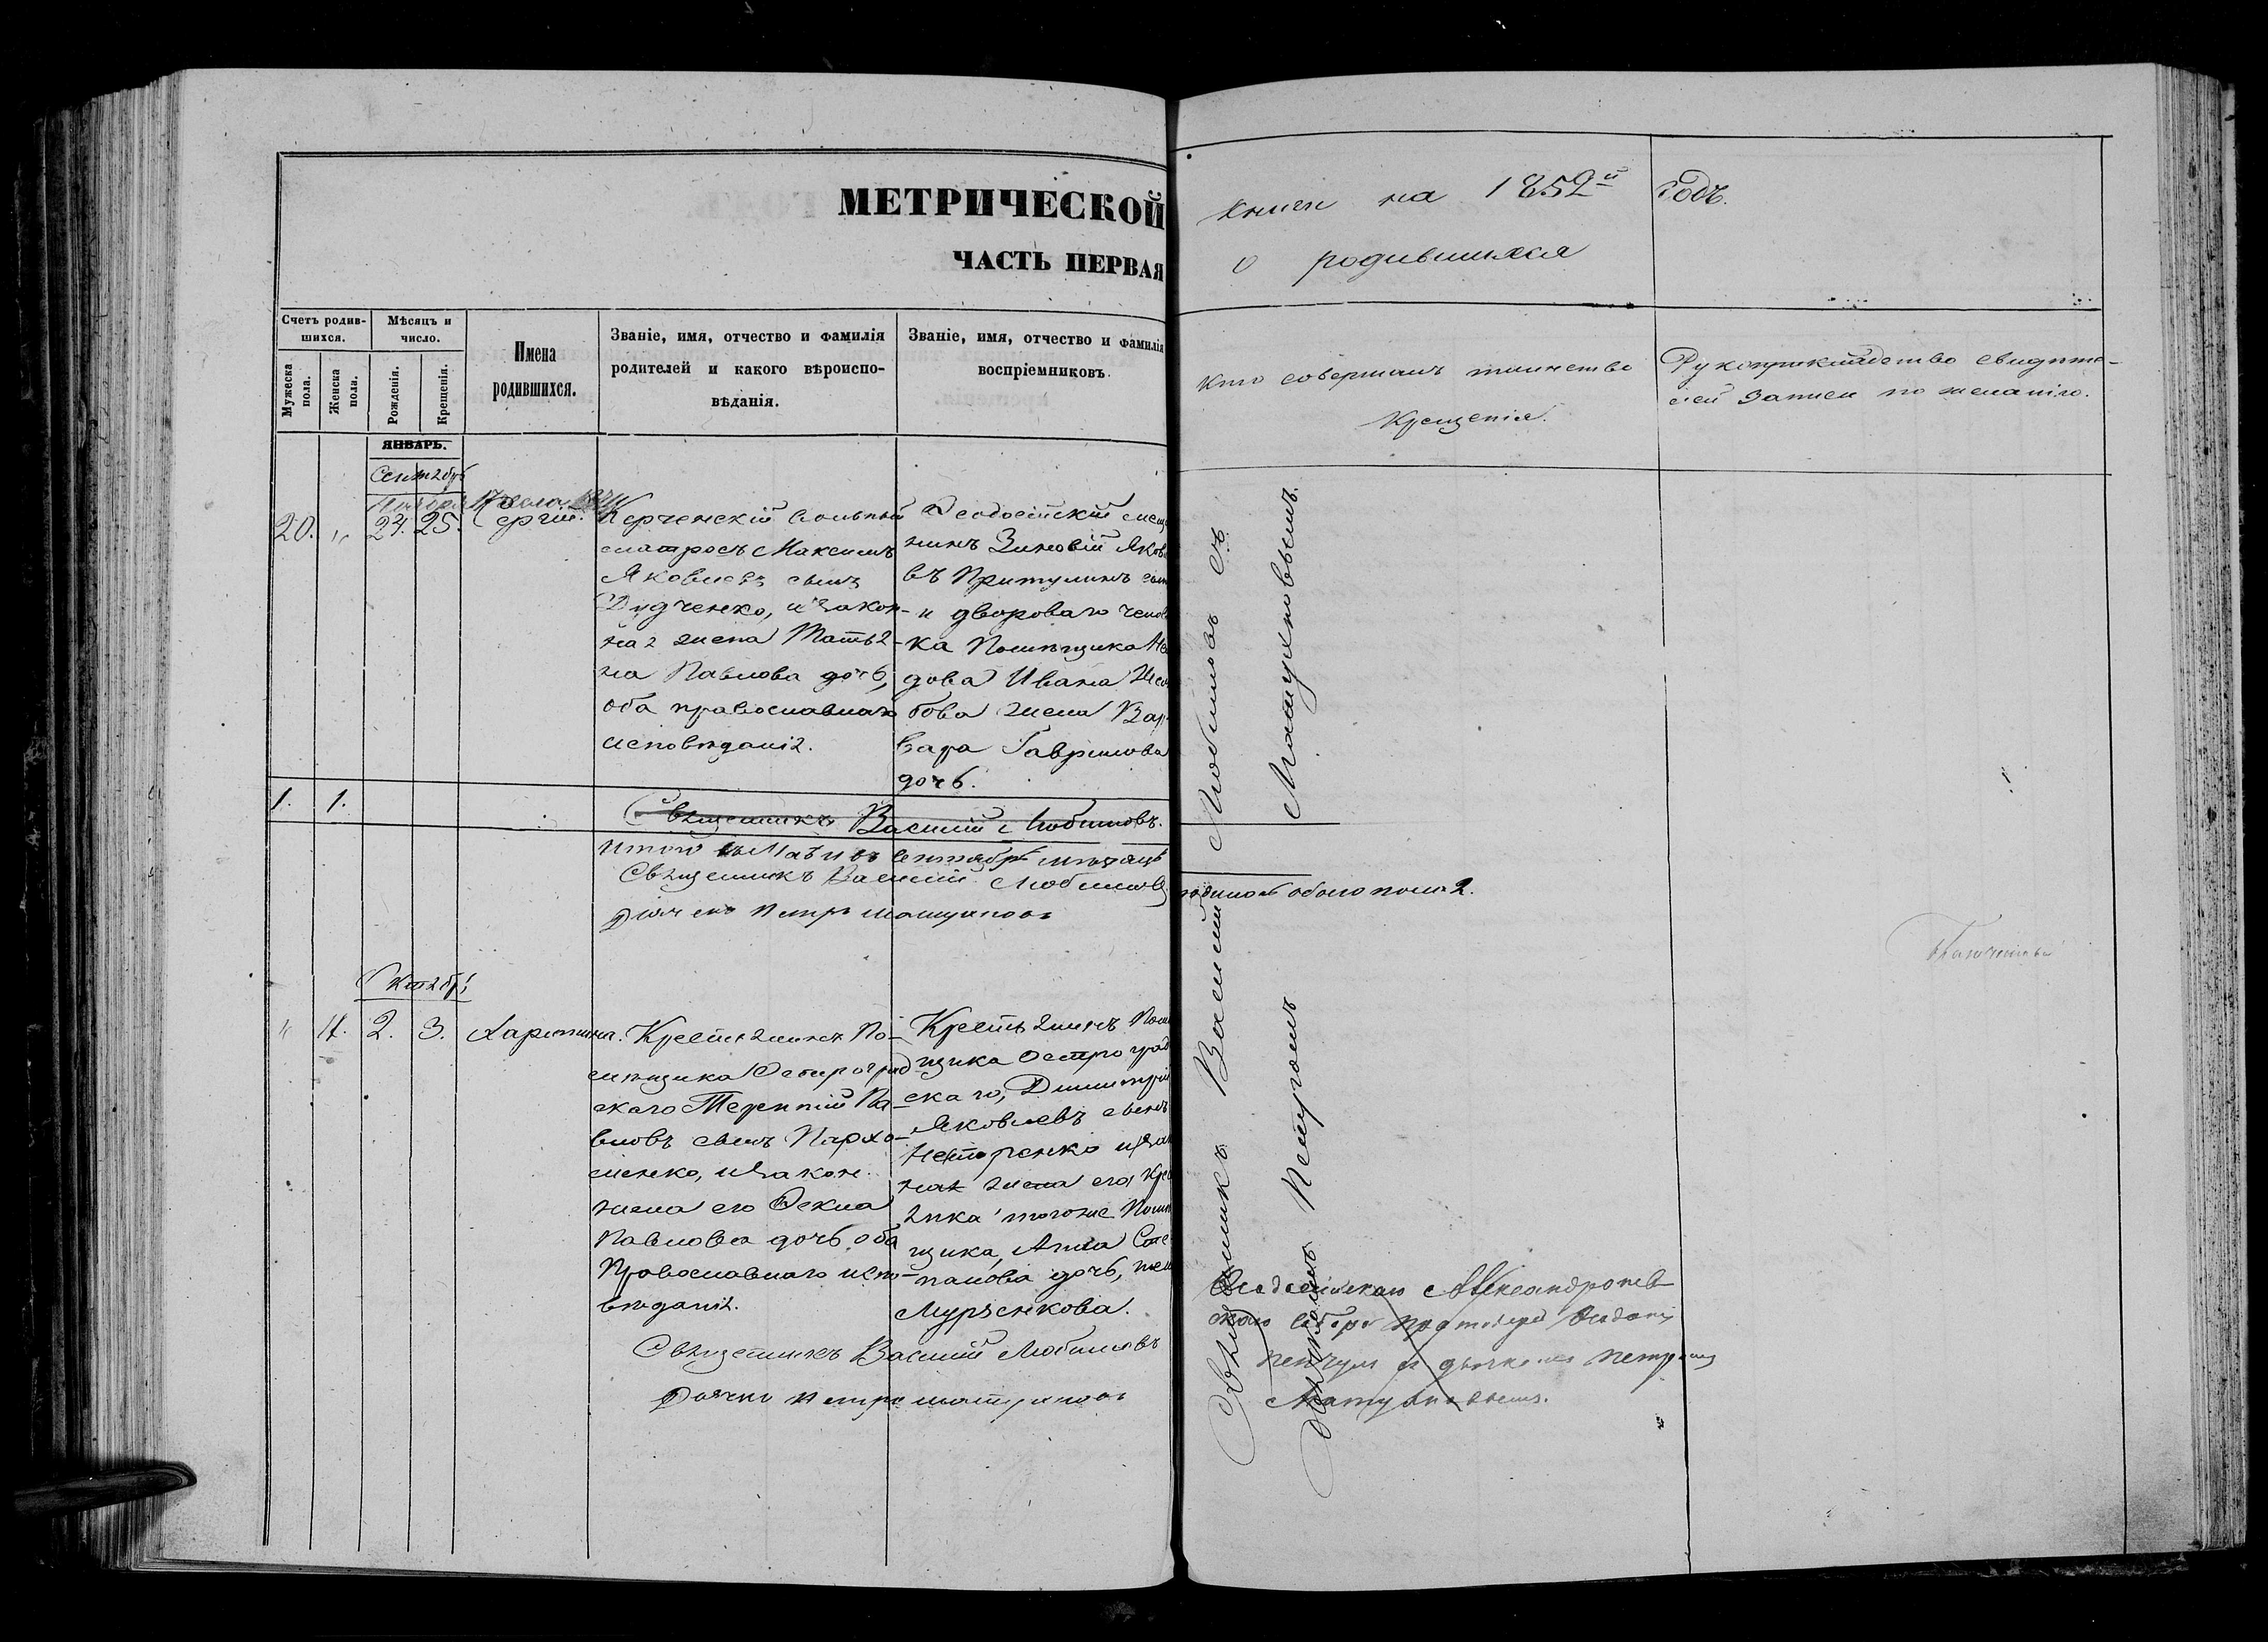 МЕТРИЧЕСКОЙ
ЧАСТЬ ПЕРВАЯ
книги на 1852й годъ.
о родившихся
Счетъ родив-
шихся.
Мужеска пола.
Женска пола.
Мѣсяцъ и
число.
Рожденія.
Крещенія.
Имена
родившихся.
Званіе, имя, отчество и фамилія
родителей и какого вѣроиспо-
вѣданія.
Званіе, имя, отчество и фамилія
воспріемниковъ.
Кто совершалъ таинство
Крещенія.
Рукоприкладство свидѣте-
лей записи по желанію.
ЯНВАРЬ.
Сентябрь
20. " 24. 25. Сергій.
Керченскій вольный
матросъ Максимъ
Яковлевъ сынъ
Дудченко, и закон-
ная жена Татья-
на Павлова дочь,
оба православнаго
исповѣданія.
Ѳеодосійскій мѣща
нинъ Зиновій Яковле
въ Притулинъ сынъ
и двороваго челов
ка Помѣщика
дова Ивана
бова жена Вар
вара Гаврилова
дочь.
1. 1.
Священникъ Василій Любимовъ.
Итого въ Сентябрѣ мѣсяцѣ
родилось обоего пола 2.
Священникъ Василій Любимовъ
Дьячекъ Петръ Матухновъ
Октябрь
" 11. 2. 3. Харитина.
Крестьянинъ По-
мѣщика Остроград
скаго Терентій Па-
вловъ сынъ Пархо-
менко, и закон.
жена его Ѳекла
Павлова дочь, оба
Православнаго испо-
вѣданія.
Крестьянинъ Помѣ
щика Остроград
скаго, Димитрій
Яковлевъ сынъ
Нестеренко и зак
ная жена его Крес
янка того же Помѣ
щика, Анна Сте
панова дочь,
Мурзенкова.
Священникъ Василій Любимовъ
Дьячекъ Петръ Матухновъ
Священникъ Василій Любимовъ съ
Дьячкомъ Петромъ Матухновымъ.
Ѳеодосійскаго Александроне
скаго Собора Протоіерей
дьячкомъ Петромъ
Матухновымъ.